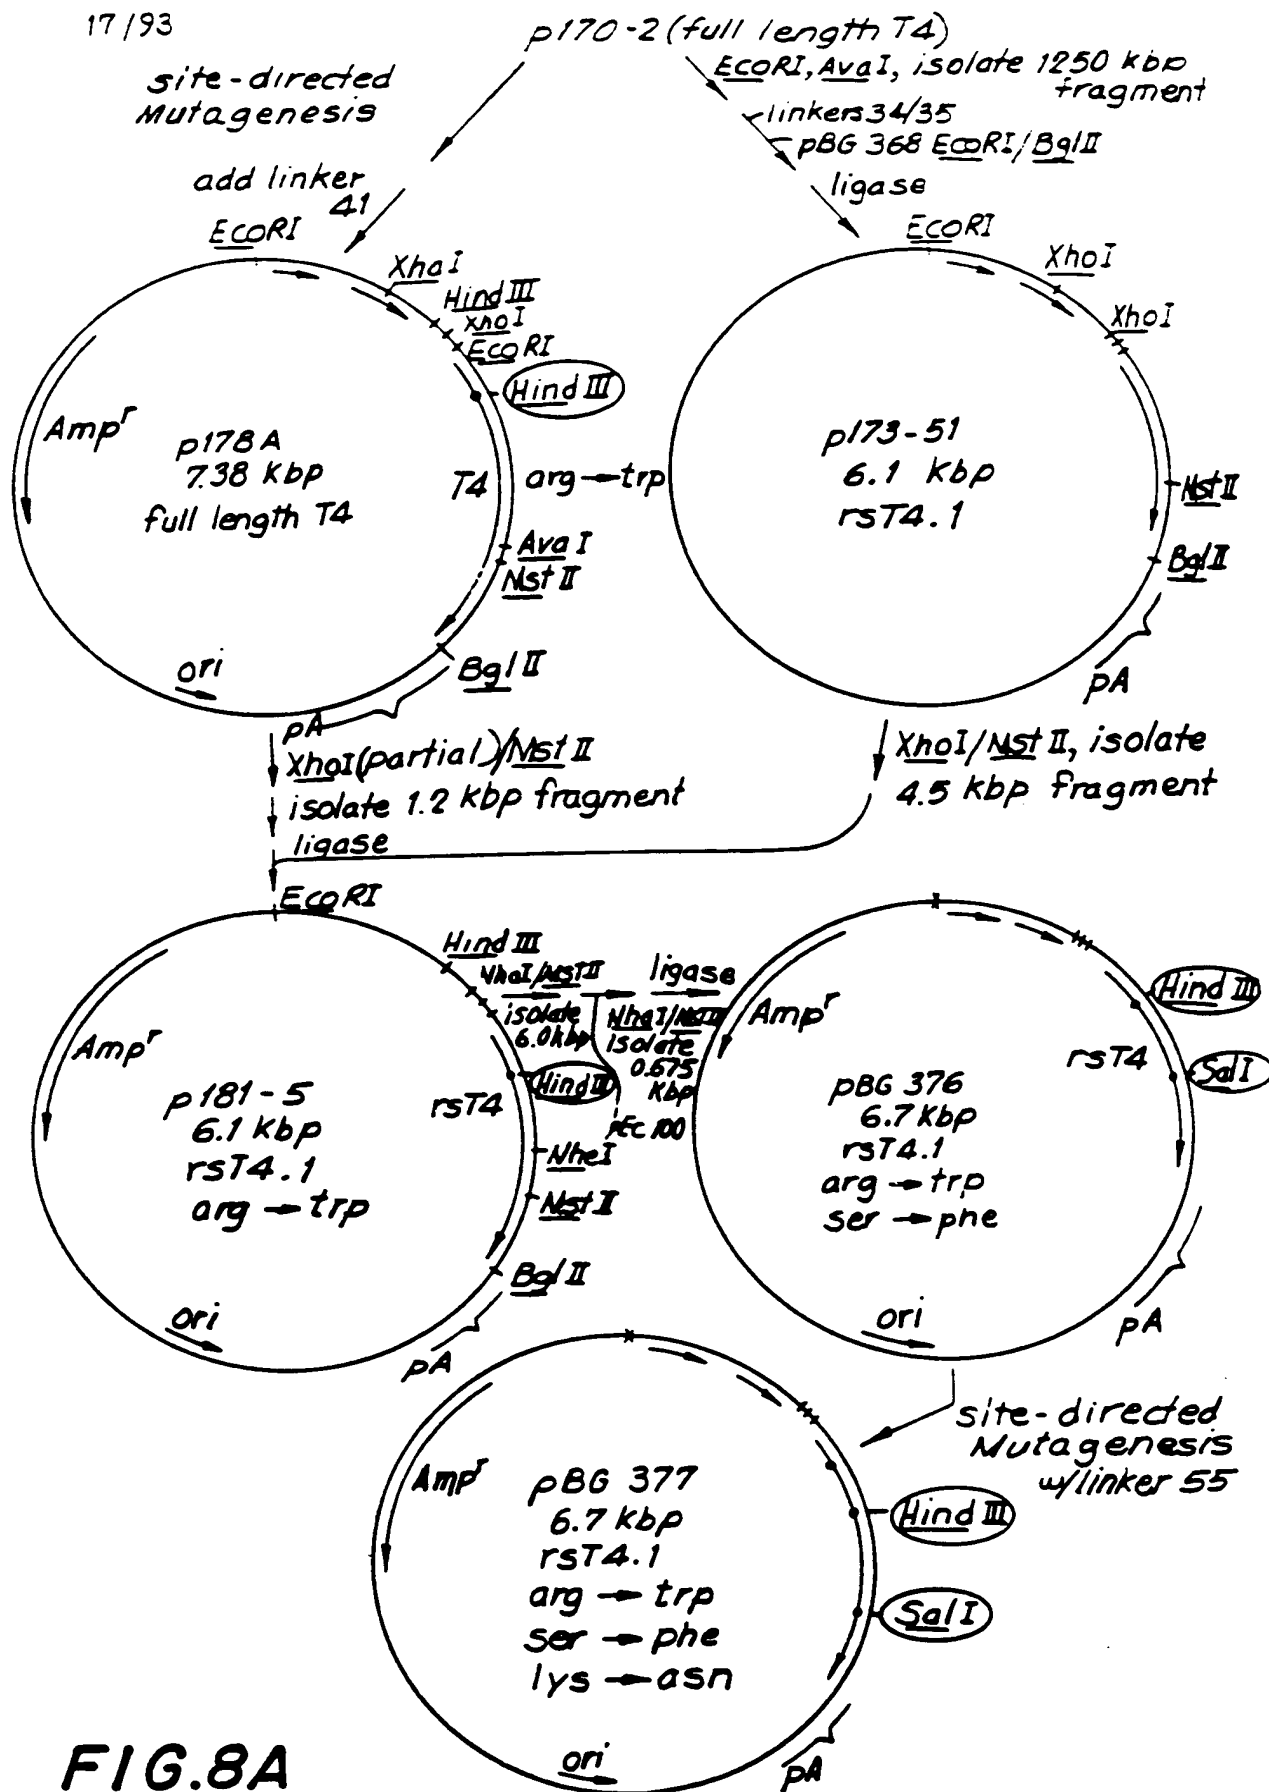 17/93
p170-2 (full length T4)
site-directed
Mutagenesis
add linker
41
EcoRI, AvaI, isolate 1250 kbp
fragment
linkers 34/35
pBG 368 EcoRI/BglII
ligase
EcoRI
XhaI
Hind III
XhoI
EcoRI
Hind III
Amp^r
p178A
7.38 Kbp
full length T4
T4
arg → trp
Ava I
Mst II
Bgl II
ori
pA
EcoRI
XhoI
XhoI
p173-51
6.1 Kbp
rsT4.1
Mst II
Bgl II
pA
XhoI (partial)/Mst II
isolate 1.2 Kbp fragment
ligase
XhoI/Mst II, isolate
4.5 Kbp fragment
EcoRI
Hind III
NheI/MstII
isolate
6.0 kbp
ligase
NheI/MstII
isolate
0.675
Kbp
pEc 100
Amp^r
p181-5
6.1 Kbp
rsT4.1
arg → trp
rsT4
Hind III
NheI
Mst II
Bgl II
ori
pA
Amp^r
pBG 376
6.7 Kbp
rsT4.1
arg → trp
ser → phe
Hind III
rsT4
Sal I
ori
pA
site-directed
Mutagenesis
w/linker 55
Amp^r
pBG 377
6.7 Kbp
rsT4.1
arg → trp
ser → phe
lys → asn
Hind III
Sal I
ori
pA
FIG.8A